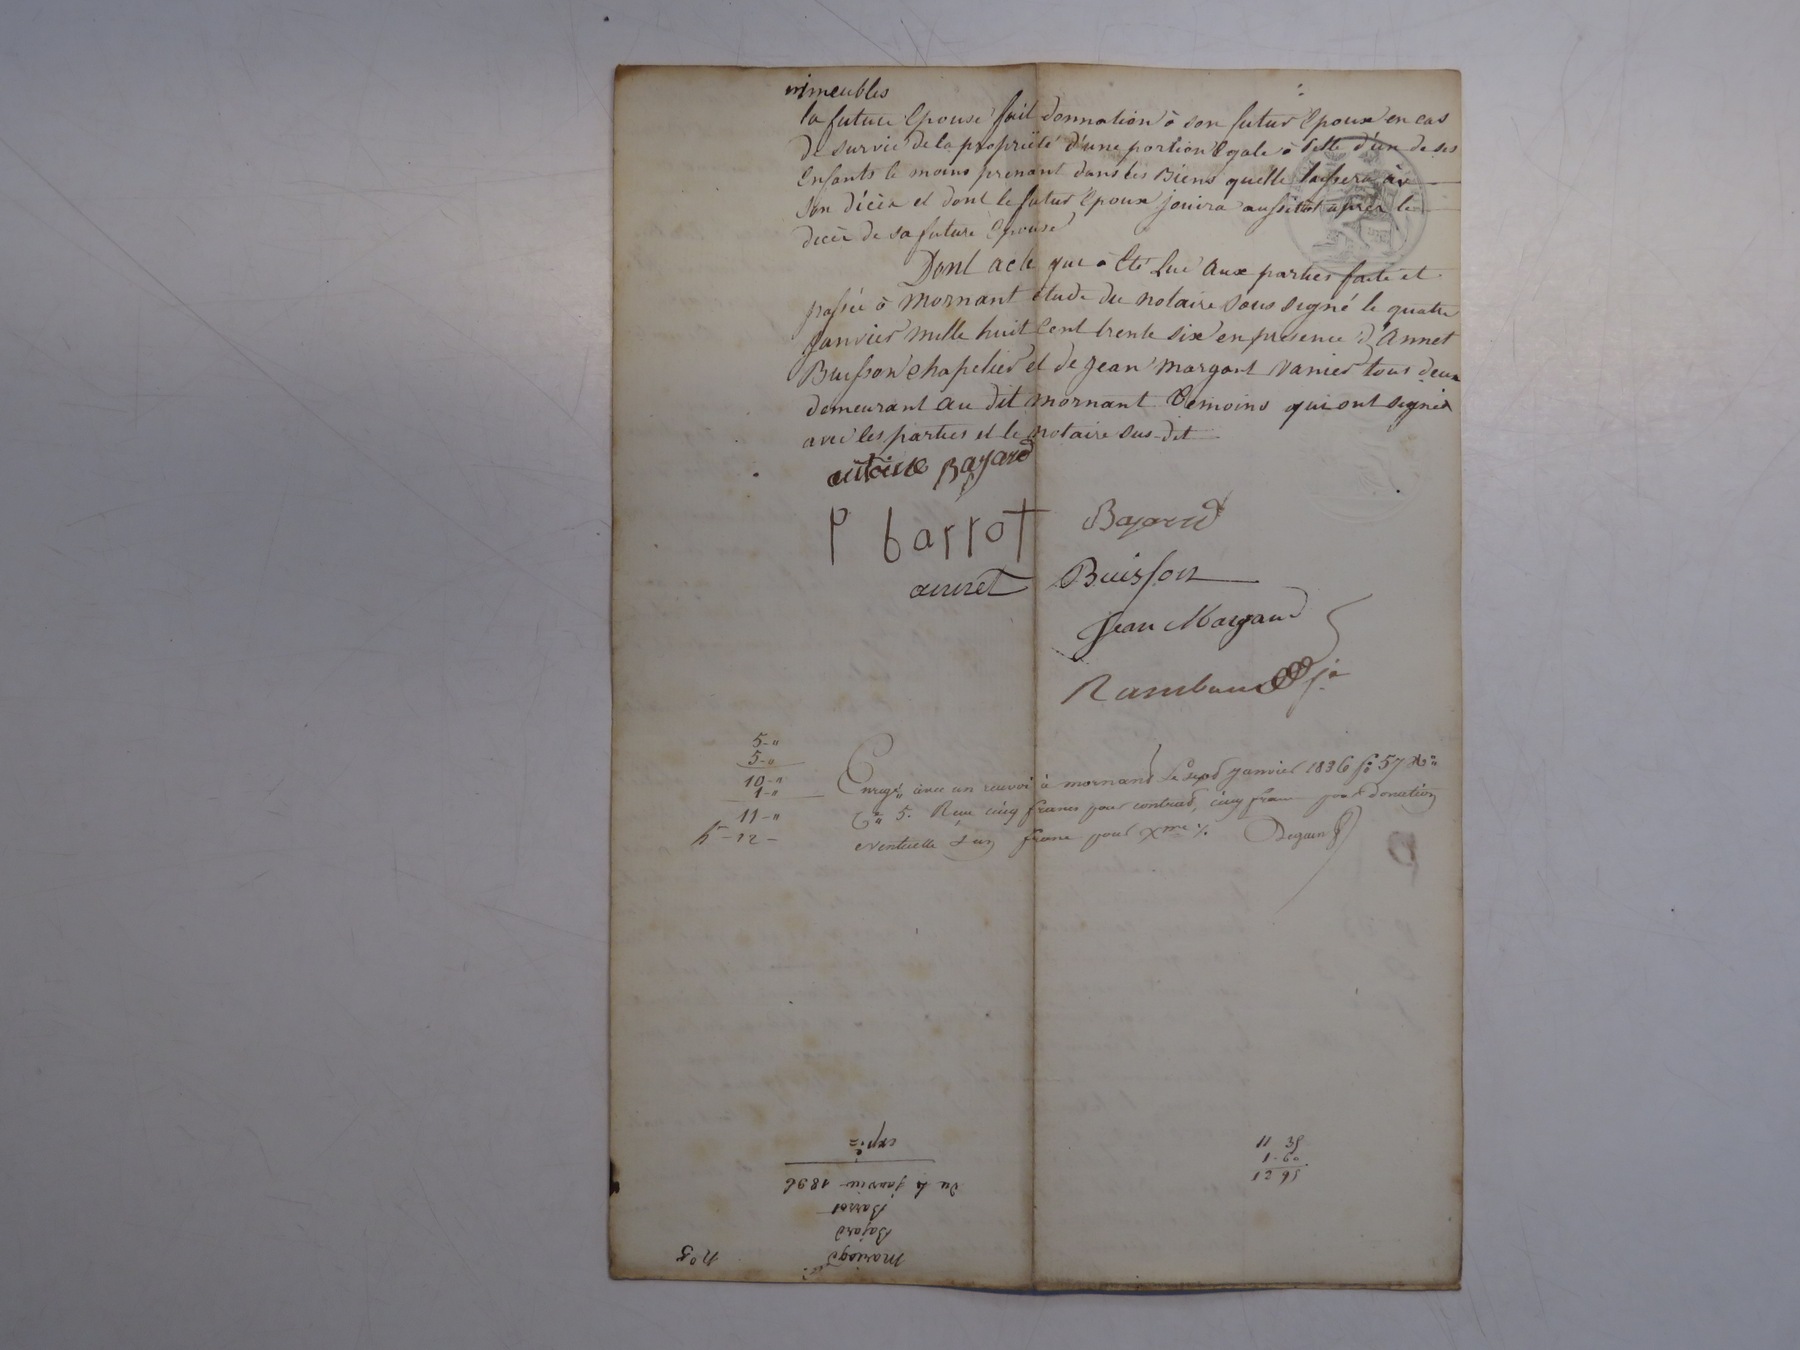 immeubles
la future Epouse fait donnation à son futur Epoux en cas
de survie de la propriété d'une portion Egale à Celle d'un de ses
Enfants le moins prenant dans les Biens quelle laissera à
son décès et dont le futur Epoux jouira aussitot après le
décès de sa future Epouse
Dont acte qui a été Lue Aux parties faite et
passée à Mornant étude du notaire sous signé le quatre
Janvier mille huit Cent trente six en présence d'Annet
Buisson chapelier et de Jean Margant vanier tous deux
demeurant Au dit Mornant Témoins qui ont signés
avec les parties et le notaire sus-dit
antoine Bajard
P barrot
Bajard
annet Buisson
Jean Margand
5-"
5-"
10-"
1-"
11-"
12-
Enregé avec un renvoi à mornant Le sept janvier 1836 fo 57
Co 5. Reçu cinq francs pour contrat, cinq francs pour donation
eventuelle & un franc pour xme
11 35
1-60
12 95
no 5
Mariage
Bajard
Barrot
du 4 janvier 1836
expée